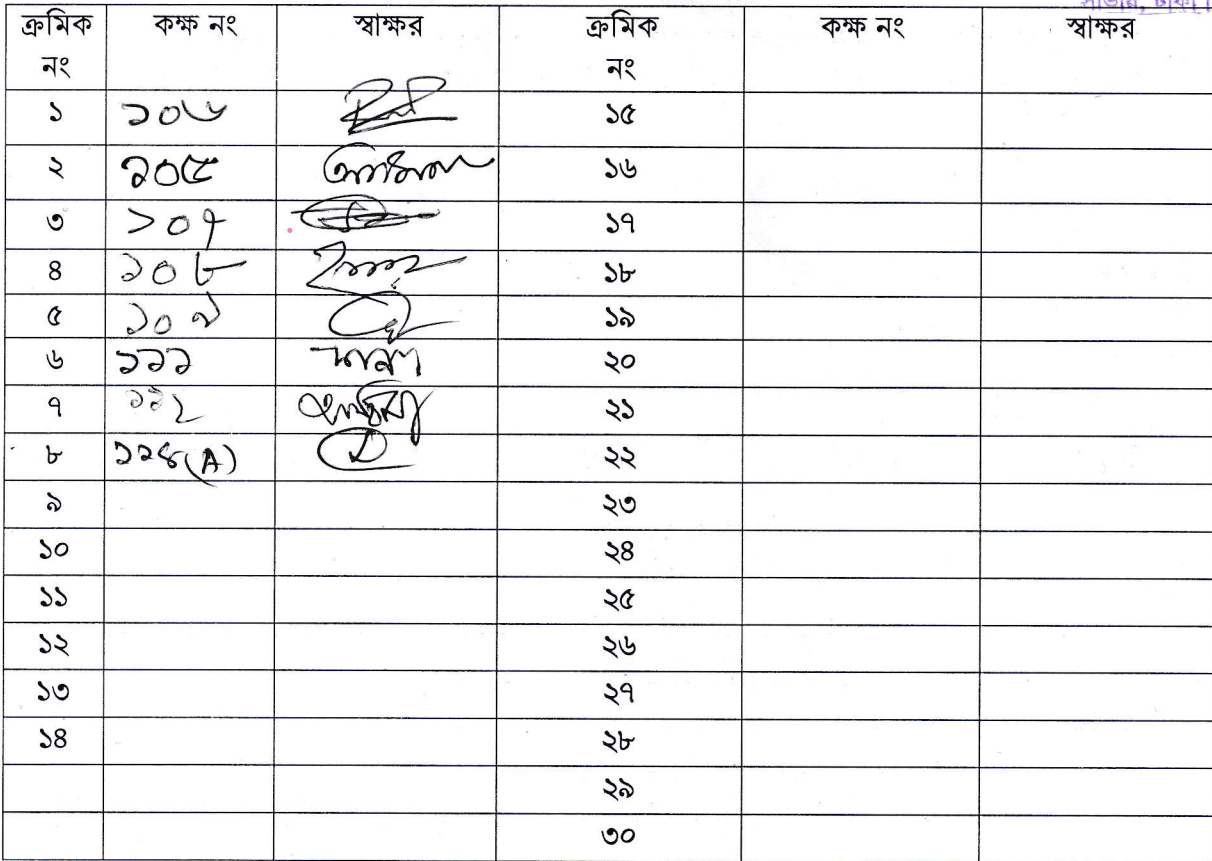 সাভার, ঢাকা।
ক্রমিক নং কক্ষ নং স্বাক্ষর ক্রমিক নং কক্ষ নং স্বাক্ষর
১ ১০৬ ১৫
২ ১০৫ ১৬
৩ ১০৭ ১৭
৪ ১০৮ ১৮
৫ ১০৯ ১৯
৬ ১১১ ২০
৭ ১১২ ২১
৮ ১১৪(A) ২২
৯ ২৩
১০ ২৪
১১ ২৫
১২ ২৬
১৩ ২৭
১৪ ২৮
২৯
৩০